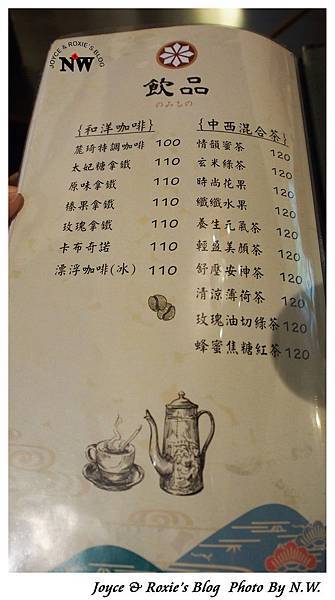 JOYCE & ROXIE'S BLOG
NW
飲品
のみもの
{和洋咖啡}
麓琦特調咖啡 100
太妃糖拿鐵 110
原味拿鐵 110
榛果拿鐵 110
玫瑰拿鐵 110
卡布奇諾 110
漂浮咖啡(冰) 110
{中西混合茶}
情韻蜜茶 120
玄米綠茶 120
時尚花果 120
纖纖水果 120
養生元氣茶 120
輕盈美顏茶 120
舒壓安神茶 120
清涼薄荷茶 120
玫瑰油切綠茶 120
蜂蜜焦糖紅茶 120
Joyce & Roxie's Blog Photo By N.W.